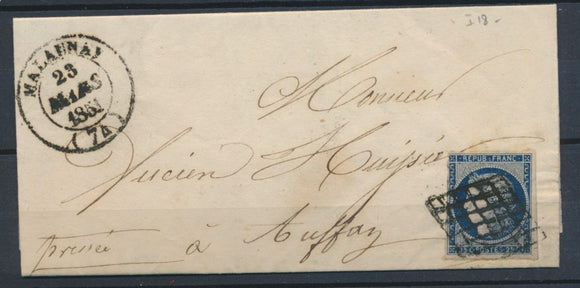 I 18-
MALAUNAY
23
MARS
1851
(74)
Monsieur
Lucien
pressée à Auffay
REPUB. FRANC.
25 C. POSTES 25 C.